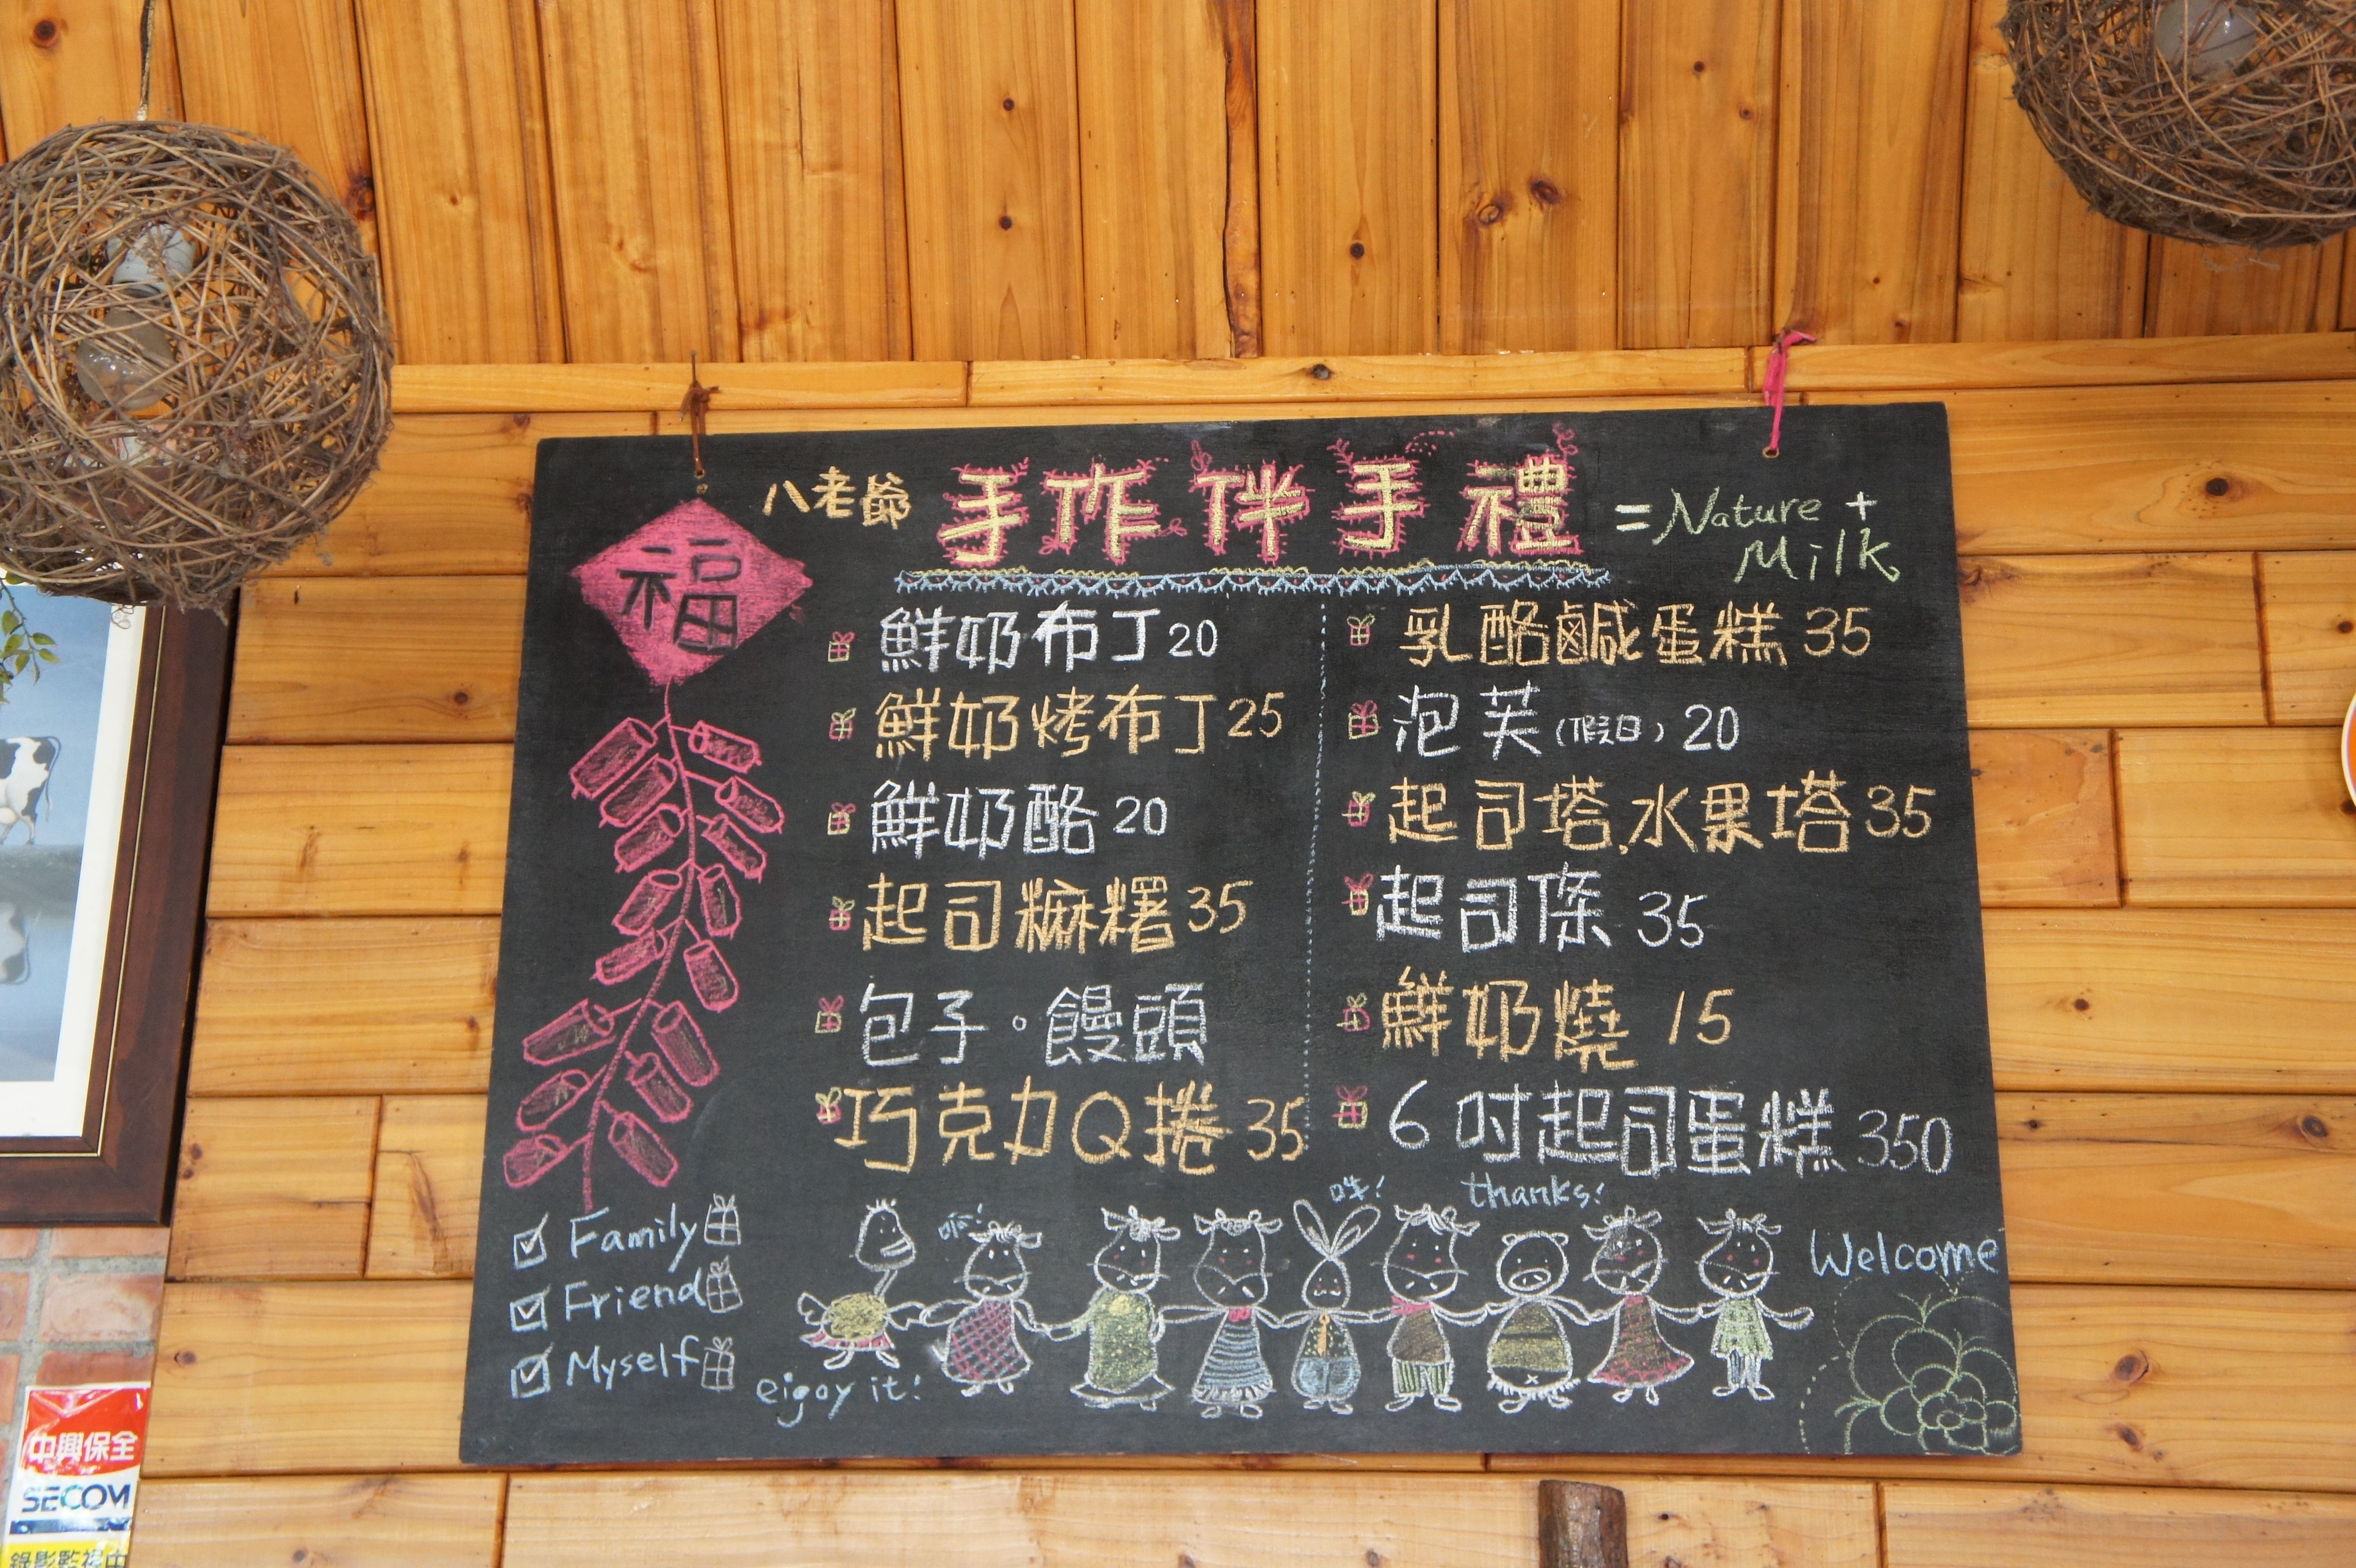 八老爺 手作伴手禮 = Nature +
Milk
福
鮮奶布丁 20
鮮奶烤布丁 25
鮮奶酪 20
起司糜糬 35
包子。饅頭
巧克力Q捲 35
乳酪鹹蛋糕 35
泡芙(假日) 20
起司塔.水果塔 35
起司條 35
鮮奶燒 15
6吋起司蛋糕 350
Family
Friend
Myself
eigoy it!
thanks!
Welcome
中興保全
SECOM
錄影監視中